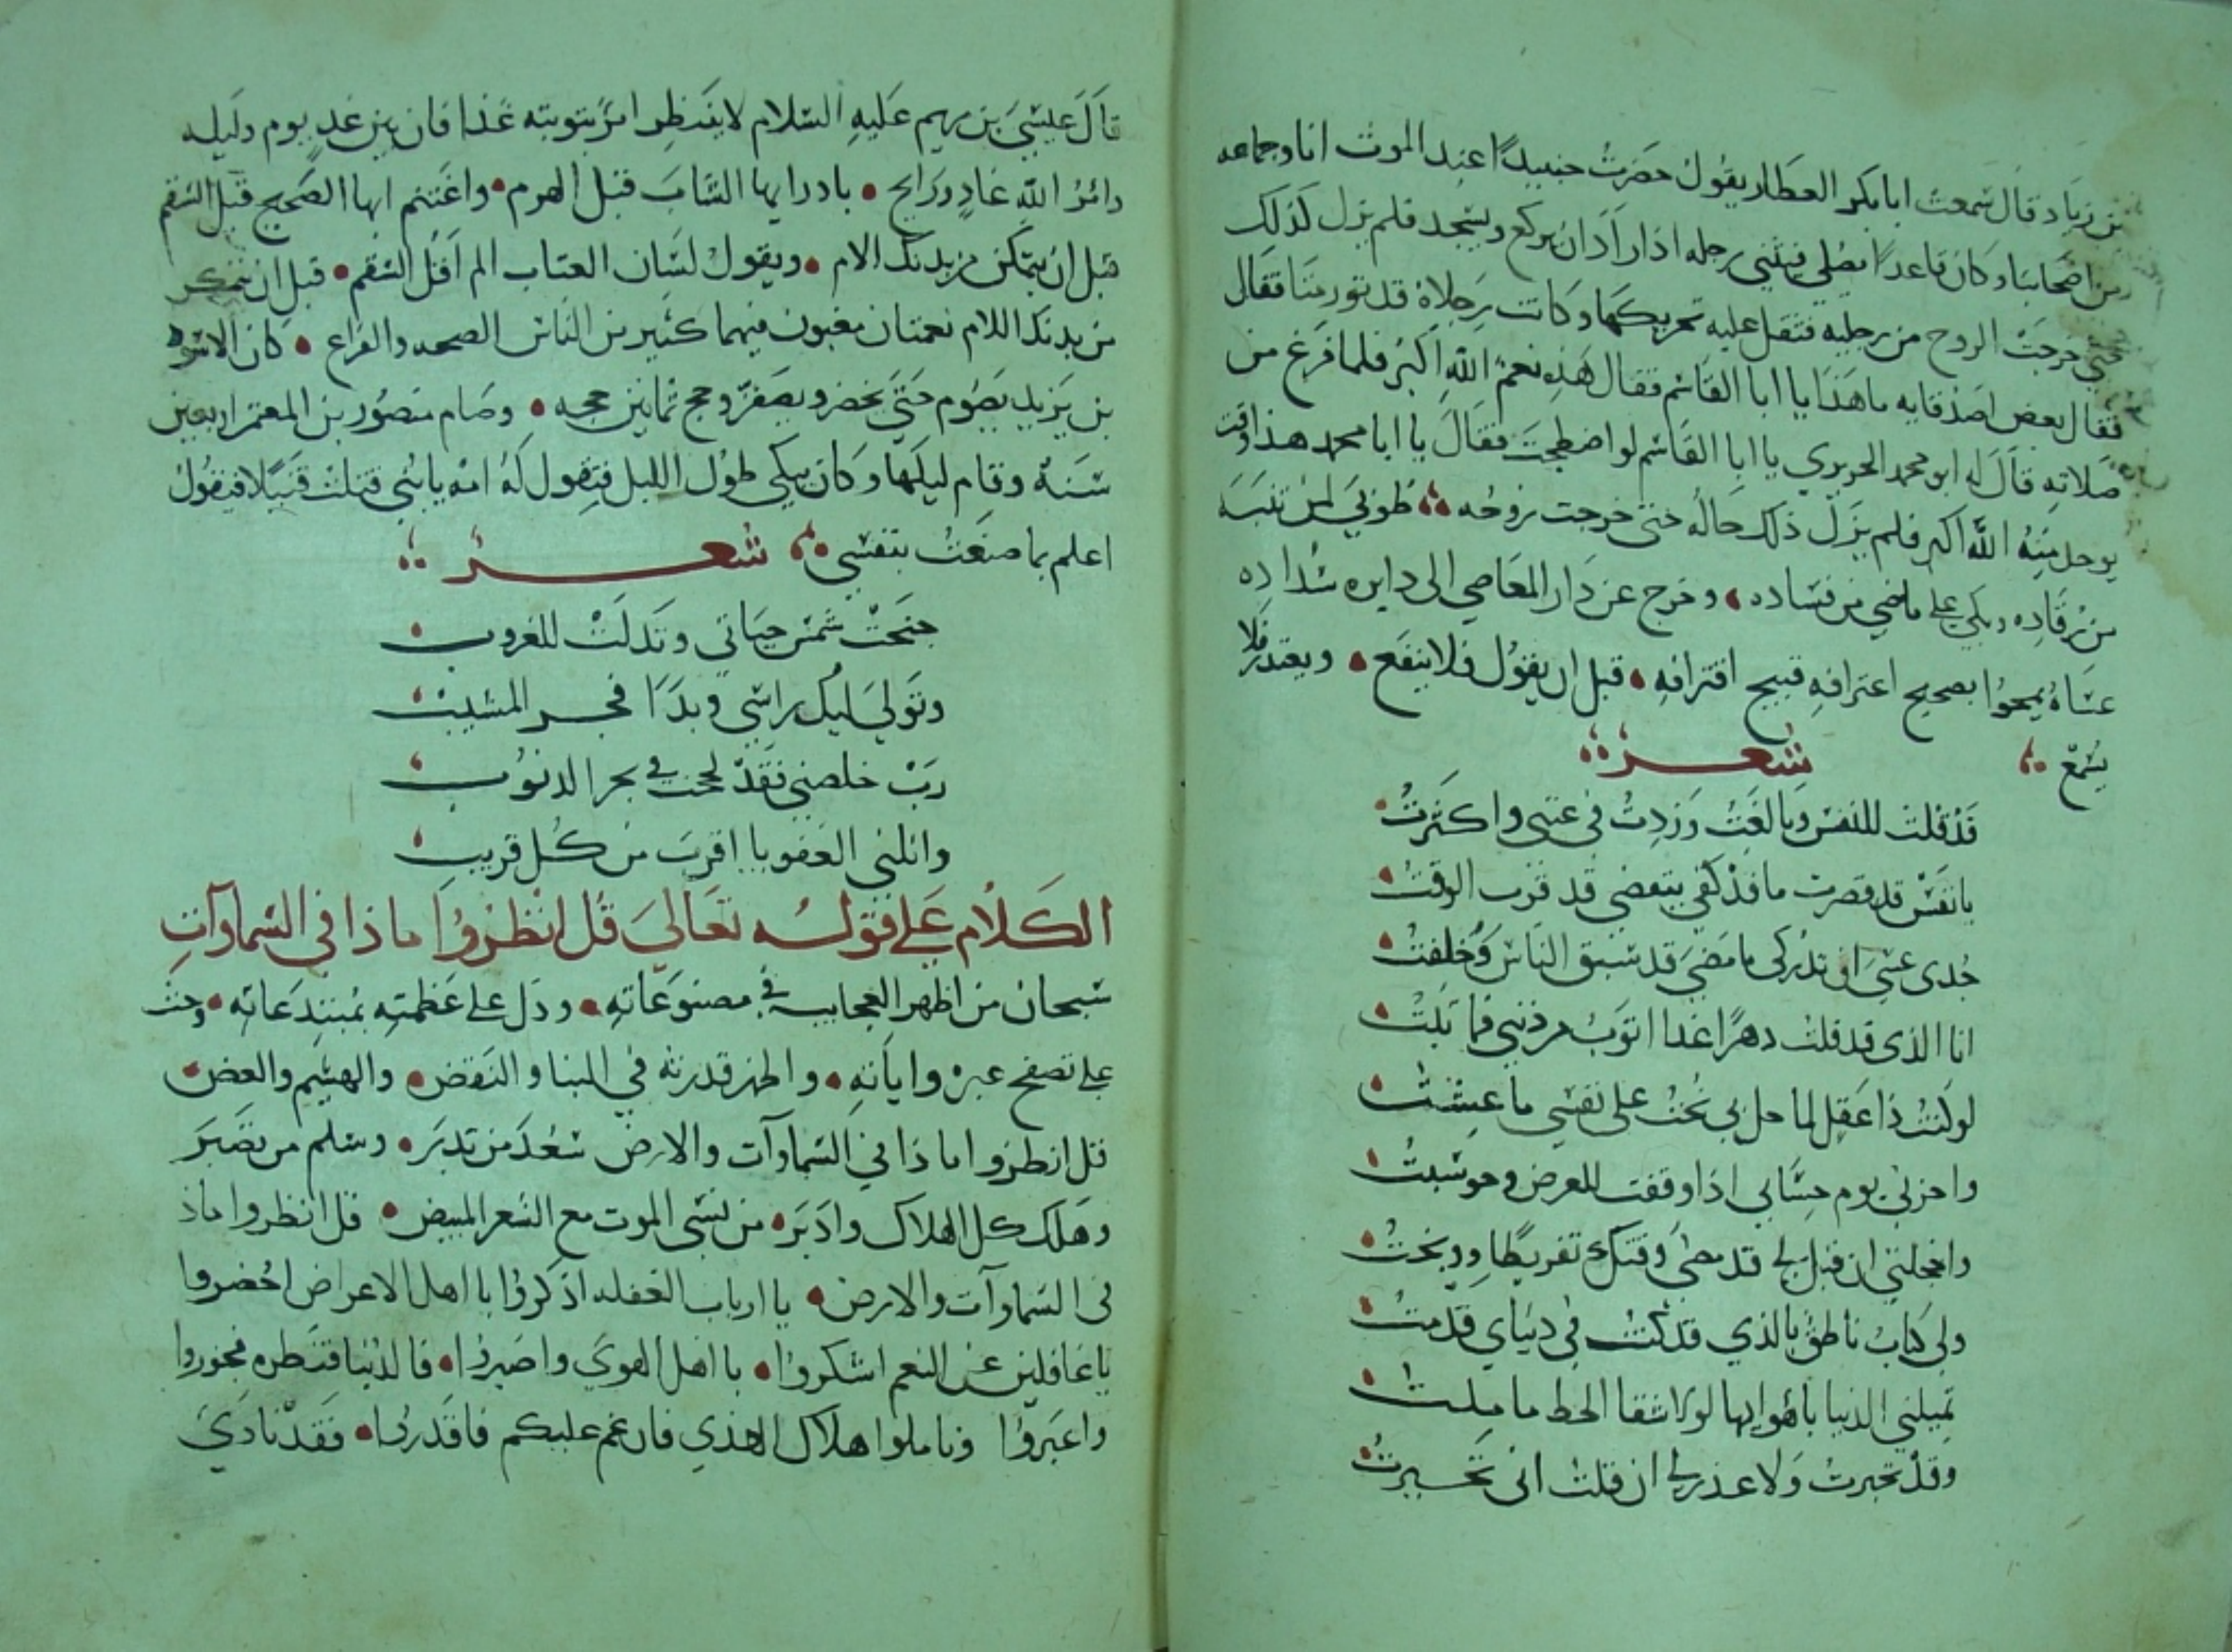 بن زياد قال سمعت ابا بكر العطار يقول حضرت جنيدًا عند الموت انا وجماعه
من اصحابنا وكان قاعدًا يصلي فيثني رجله اذا اراد ان يركع ويسجد فلم يزل كذلك
حتى خرجت الروح من رجليه فثقل عليه تحريكهما وكانت رجلاه قد تورمتا فقال
فقال بعض اصدقايه ما هذا يا ابا القاسم فقال هذه نعم الله اكبر فلما فرغ من
صلاته قال له ابو محمد الحريري يا ابا القاسم لو اضطجعت فقال يا ابا محمد هذا وقت
يوحل منه الله اكبر فلم يزل ذلك حاله حتى خرجت روحه طوبى لمن تنبه
من رقاده وبكى على ما مضى من فساده وخرج عن دار المعاصي الى دايره سداده
عساه يمحوا بصحيح اعترافه قبيح اقترافه قبل ان يقول فلا ينفع ويعتذر فلا
يسمع شعر
قد قلت للنفس وبالغت وزدت في عتبى واكثرت
يا نفس قد قصرت ما قد كفى بتعضي قد قرب الوقت
جدى عسى ان تدركى ما مضى قد سبق الناس وخلفت
انا الذى قد قلت دهرًا غدا اتوب من ذنبي فما تبت
لو كنت ذا عقل لما حل بي نحت على نفسي ما عشت
واحزني يوم حسابي اذا وقفت للعرض وحوسبت
واخجلتي ان قيل لي قد مضى وقتك تفريطا ووبخت
ولى كتاب ناطق بالذي قد كنت في دنياي قدمت
تميلني الدنيا باهوايها لولا شقا الحظ ما ملت
وقد تحيرت ولا عذر لي ان قلت انى تحيرت
قال عيسى بن مريم عليه السلام لا ينتظر امرؤ بتوبته غدا فان بين غد يوم وليله
وامر الله غاد ورايح بادر ايها الشاب قبل الهرم واغتنم ايها الصحيح قبل السقم
قبل ان يتمكن من بدنك الالام ويقول لسان العتاب الم اقل السقم قبل ان يتمكن
من بدنك اللام نعمتان مغبون فيهما كثير من الناس الصحه والفراغ كان الاسود
بن يزيد يصوم حتى يخضر ويصفر وحج ثمانين حجه وصام منصور بن المعتمر اربعين
سنة وقام ليلها وكان يبكي طول الليل فتقول له امه يا بني قتلت قتيلا فيقول
اعلم بما صنعت بنفسي شعر
جنحت شمس حياتي وتدلت للغروب
وتولى ليل راسي وبدا فجر المشيب
رب خلصني فقد لججت في بحر الذنوب
وانلني العفو يا اقرب من كل قريب
الكلام على قوله تعالى قل انظروا ماذا في السماوات
سبحان من اظهر العجايب في مصنوعاته ودل على عظمته بمبتدعاته وحث
على تصفح عبره واياته واظهر قدرته في البنا والنقض والهشيم والغض
قل انظروا ماذا في السماوات والارض سعد من تدبر وسلم من تصبر
وهلك كل الهلاك وادبر من نسى الموت مع الشعر المبيض قل انظروا ماذ
فى السماوات والارض يا ارباب الغفله اذكروا يا اهل الاعراض احضروا
يا غافلين عن النعم اشكروا يا اهل الهوى واصبروا فالدنيا قنطره فجوزوا
واعبروا وتاملوا هلاك الهذي فان غم عليكم فاقدروا فقد نادى